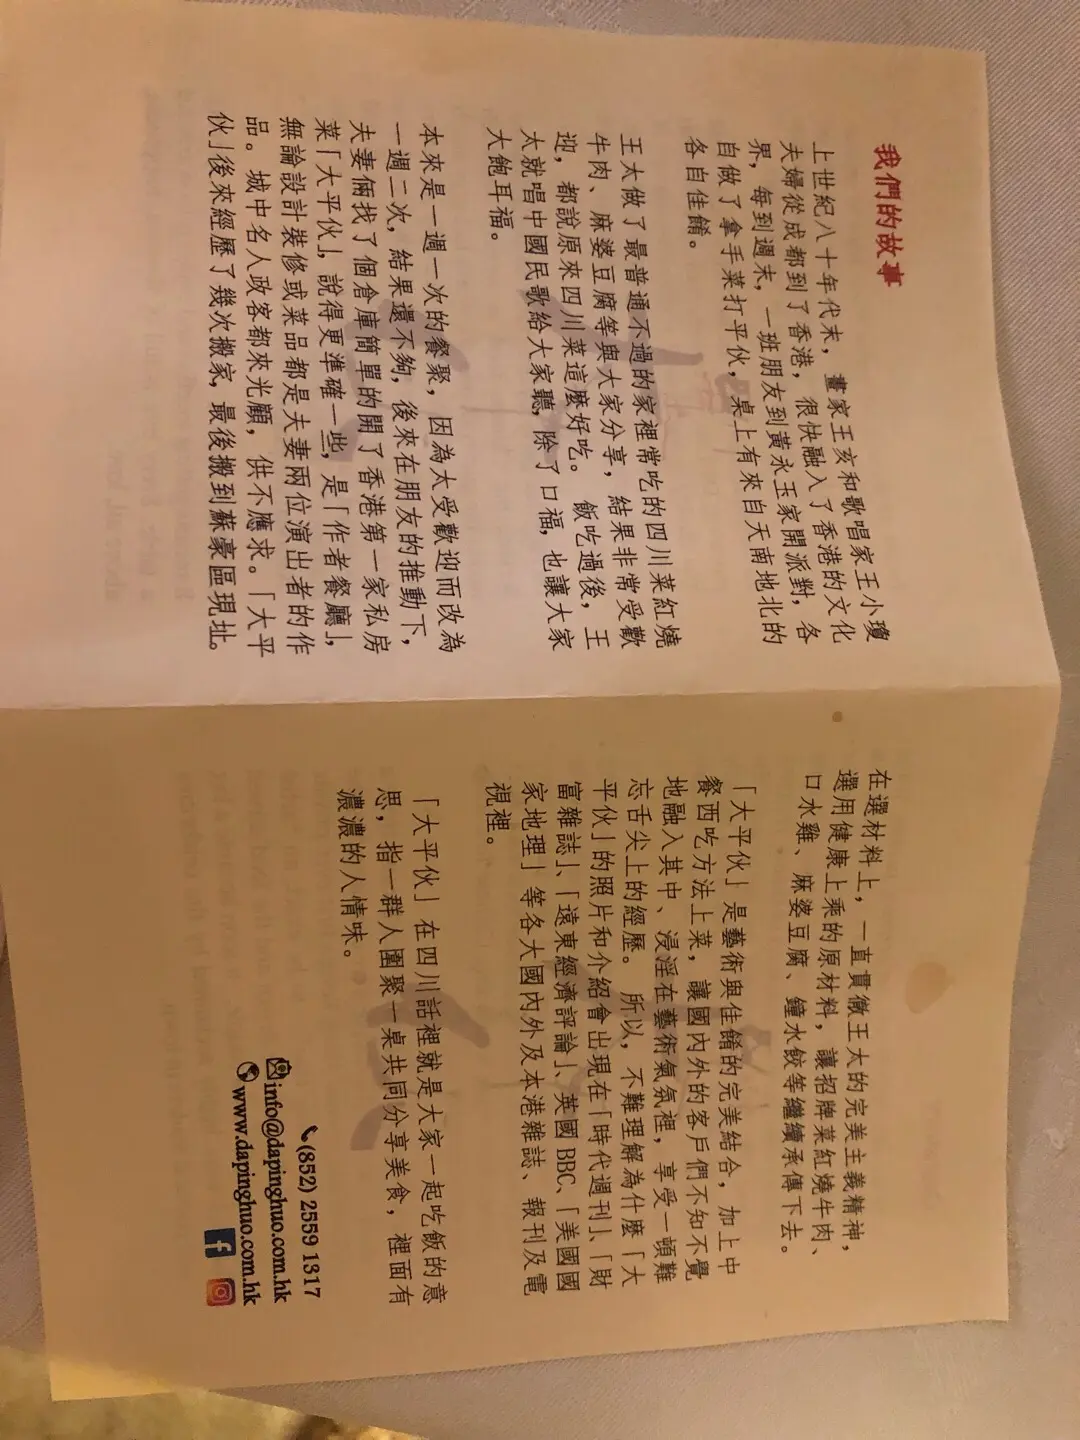 我們的故事
上世紀八十年代末，畫家王亥和歌唱家王小瓊
夫婦從成都到了香港，很快融入了香港的文化
界，每到週末，一班朋友到黃永玉家開派對，各
自做了拿手菜打平伙，桌上有來自天南地北的
各自佳餚。
王太做了最普通不過的家裡常吃的四川菜紅燒
牛肉、麻婆豆腐等與大家分享，結果非常受歡
迎，都說原來四川菜這麼好吃。飯吃過後，王
太就唱中國民歌給大家聽，除了口福，也讓大家
大飽耳福。
本來是一週一次的餐聚，因為太受歡迎而改為
一週二次，結果還不夠，後來在朋友的推動下，
夫妻倆找了個倉庫簡單的開了香港第一家私房
菜「大平伙」，說得更準確一些，是「作者餐廳」，
無論設計裝修或菜品都是夫妻兩位演出者的作
品。城中名人政客都來光顧，供不應求。「大平
伙」後來經歷了幾次搬家，最後搬到蘇豪區現址。
在選材料上，一直貫徹王太的完美主義精神，
選用健康上乘的原材料，讓招牌菜紅燒牛肉、
口水雞、麻婆豆腐、鐘水餃等繼續承傳下去。
「大平伙」是藝術與佳餚的完美結合，加上中
餐西吃方法上菜，讓國內外的客戶們不知不覺
地融入其中、浸淫在藝術氣氛裡，享受一頓難
忘舌尖上的經歷。所以，不難理解為什麼「大
平伙」的照片和介紹會出現在「時代週刊」、「財
富雜誌」、「遠東經濟評論」、英國 BBC、「美國國
家地理」等各大國內外及本港雜誌、報刊及電
視裡。
「大平伙」在四川話裡就是大家一起吃飯的意
思，指一群人圍聚一桌共同分享美食，裡面有
濃濃的人情味。
(852) 2559 1317
info@dapinghuo.com.hk
www.dapinghuo.com.hk